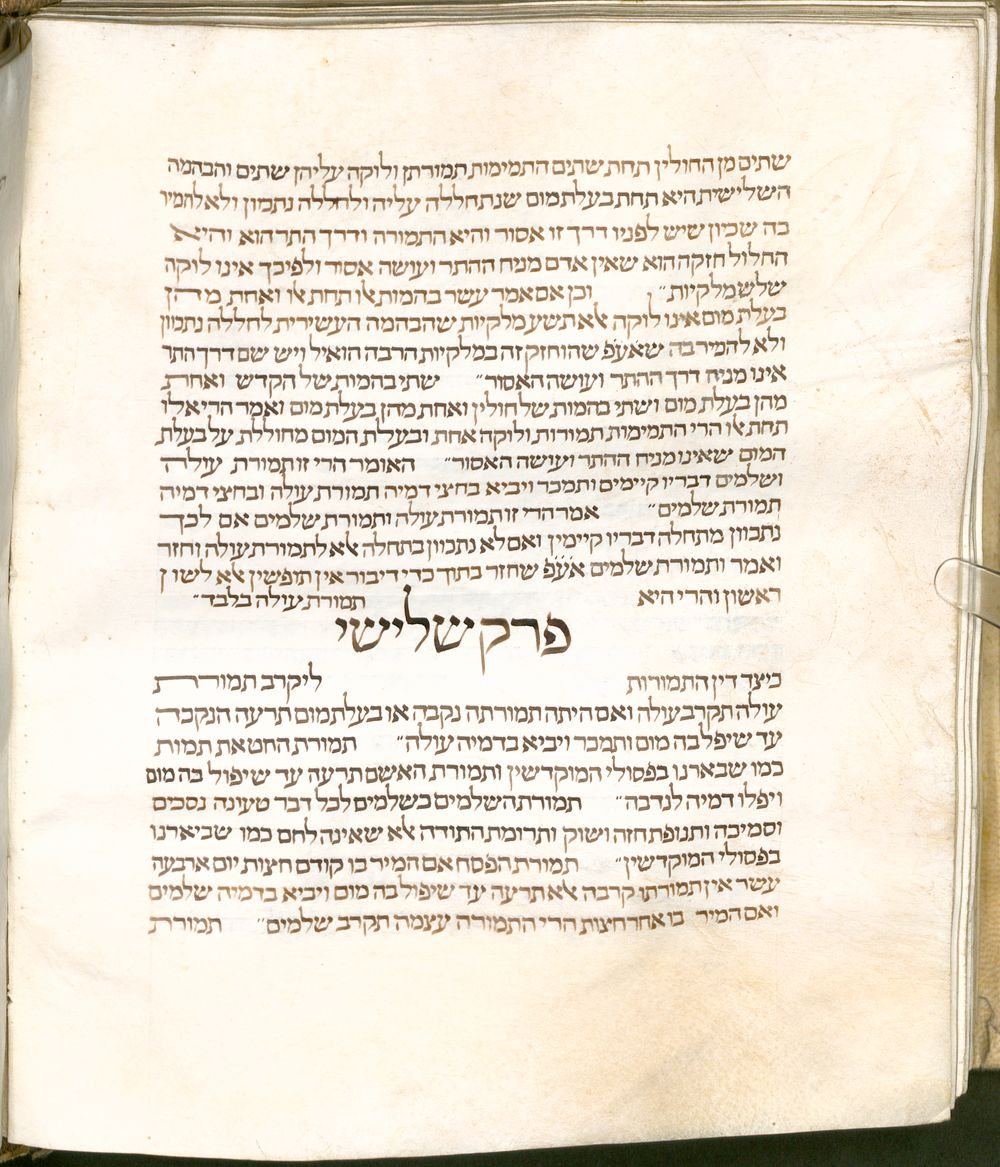 שתים מן החולין תחת שתים התמימות תמורתן ולוקה עליהן שתים והבהמה
השלישית היא תחת בעלת מום שנתחללה עליה ולחללה נתכוון ולא להמיר
בה שכיון שיש לפניו דרך זו אסור והיא התמורה ודרך התר הוא והיא
החלול חזקה הוא שאין אדם מניח ההתר ועושה אסור ולפיכך אינו לוקה
שלש מלקיות״ וכן אם אמר עשר בהמות אלו תחת אלו ואחת מהן
בעלת מום אינו לוקה אלא תשע מלקיות שהבהמה העשירית לחללה נתכוון
ולא להמיר בה שאע״פ שהוחזק זה במלקיות הרבה הואיל ויש שם דרך התר
אינו מניח דרך ההתר ועושה האסור״ שתי בהמות של הקדש ואחת
מהן בעלת מום ושתי בהמות של חולין ואחת מהן בעלת מום ואמר הרי אלו
תחת אלו הרי התמימות תמורות ולוקה אחת ובעלת המום מחוללת על בעלת
המום שאינו מניח ההתר ועושה האסור״ האומר הרי זו תמורת עולה
ושלמים דבריו קיימים ותמכר ויביא בחצי דמיה תמורת עולה ובחצי דמיה
תמורת שלמים״ אמר הרי זו תמורת עולה ותמורת שלמים אם לכך
נתכוון מתחלה דבריו קיימין ואם לא נתכוון בתחלה אלא לתמורת עולה וחזר
ואמר ותמורת שלמים אע״פ שחזר בתוך כדי דיבור אין תופשין אלא לשון
ראשון והרי היא תמורת עולה בלבד״
פרק שלישי
כיצד דין התמורות ליקרב תמורת
עולה תקרב עולה ואם היתה תמורתה נקבה או בעלת מום תרעה הנקבה
עד שיפל בה מום ותמכר ויביא בדמיה עולה״ תמורת החטאת תמות
כמו שבארנו בפסולי המוקדשין ותמורת האשם תרעה עד שיפול בה מום
ויפלו דמיה לנדבה״ תמורת השלמים כשלמים לכל דבר טעונה נסכים
וסמיכה ותנופת חזה ושוק ותרומת התודה אלא שאינה לחם כמו שביארנו
בפסולי המוקדשין״ תמורת הפסח אם המיר בו קודם חצות יום ארבעה
עשר אין תמורתו קרבה אלא תרעה עד שיפול בה מום ויביא בדמיה שלמים
ואם המיר בו אחר חצות הרי התמורה עצמה תקרב שלמים״ תמורת